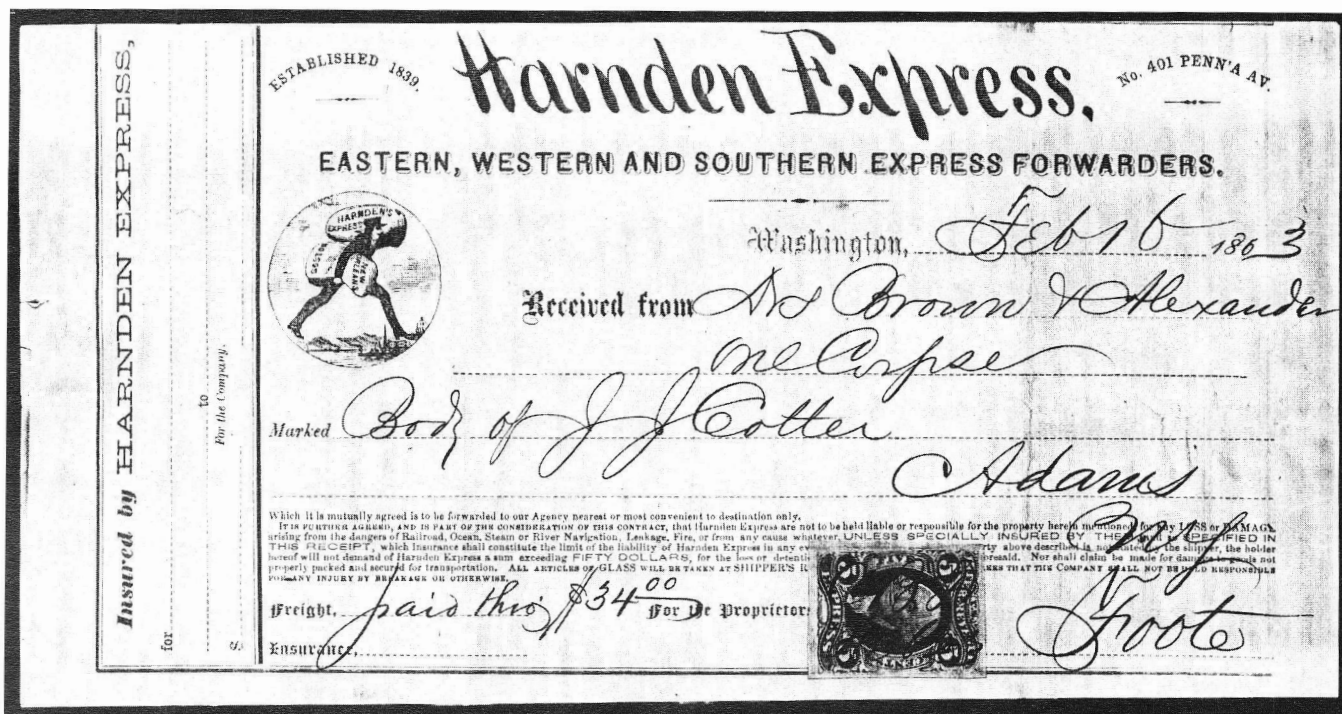 ESTABLISHED 1839.
Harnden Express,
No. 401 PENN'A AV.
EASTERN, WESTERN AND SOUTHERN EXPRESS FORWARDERS.
HARNDEN'S
EXPRESS
BOSTON
NEW
ORLEANS
Washington, Feb 16 1863
Received from Drs Brown & Alexander
One Corpse
Marked Body of J J Cotter
Adams
Which it is mutually agreed is to be forwarded to our Agency nearest or most convenient to destination only.
IT IS FURTHER AGREED, AND IS PART OF THE CONSIDERATION OF THIS CONTRACT, that Harnden Express are not to be held liable or responsible for the property herein mentioned, for any LOSS or DAMAGE
arising from the dangers of Railroad, Ocean, Steam or River Navigation, Leakage, Fire, or from any cause whatever, UNLESS SPECIALLY INSURED BY THEM and so SPECIFIED IN
THIS RECEIPT, which Insurance shall constitute the limit of the liability of Harnden Express in any erty above described is not by the shipper, the holder
hereof will not demand of Harnden Express a sum exceeding FIFTY DOLLARS, for the loss or detenti foresaid. Nor shall claim be made for damage to goods not
properly packed and secured for transportation. ALL ARTICLES OF GLASS WILL BE TAKEN AT SHIPPER'S R KES THAT THE COMPANY SHALL NOT BE HELD RESPONSIBLE
FOR ANY INJURY BY BREAKAGE OR OTHERWISE.
Freight, paid thro $34.00 For the Proprietor:
Foote
Insurance,
EXPRESS
5 CENTS 5
Insured by HARNDEN EXPRESS,
for
to
For the Company.
$